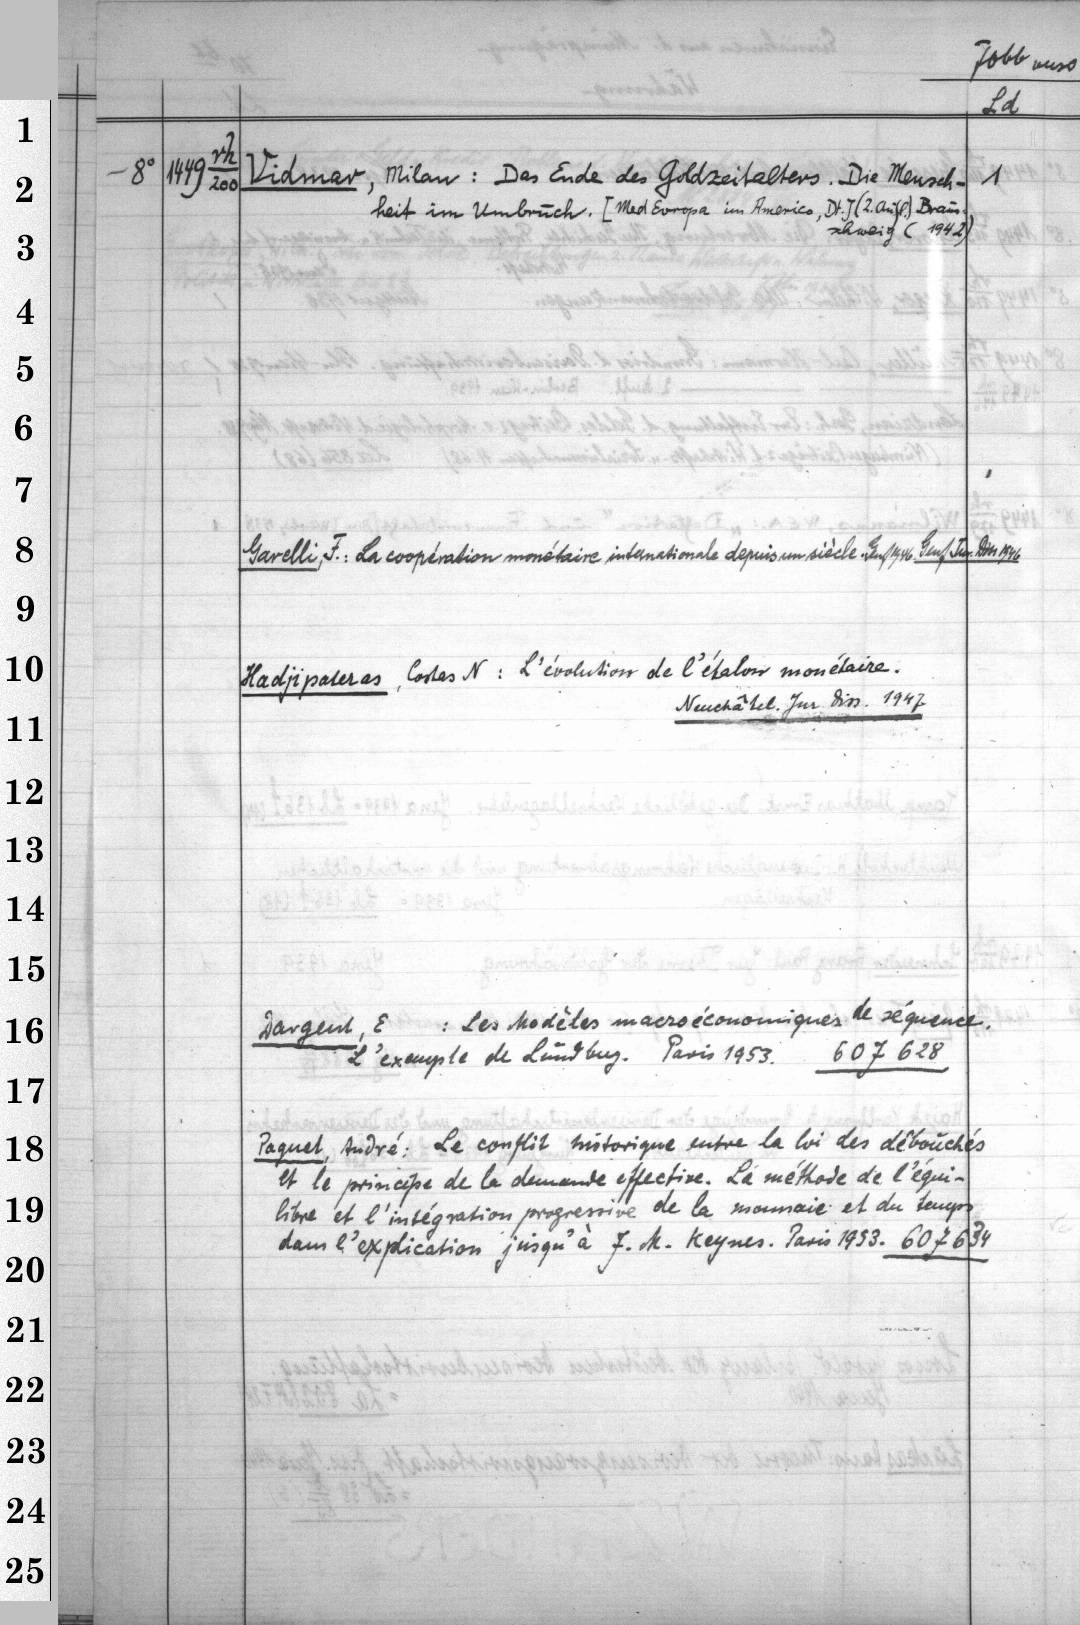 Fobb verso
Ld
1
2
3
4
5
6
7
8
9
10
11
12
13
14
15
16
17
18
19
20
21
22
23
24
25
8° 1449 rh/200 Vidmar, Milan: Das Ende des Goldzeitalters. Die Mensch- 1
heit im Umbruch. [Med Evropa in Americo, Dt.] (2. Aufl.) Braun-
schweig (1942)
Gavelli, F.: La coopération monétaire internationale depuis un siècle. Genf 1946. Genf Jur. Diss 1946
Hadjipateras, Costas N: L'évolution de l'étalon monétaire.
Neuchâtel. Jur Diss. 1947
Dargent, E : Les Modèles macroéconomiques de séquence.
L'exemple de Lundberg. Paris 1953. 607 628
Paquet, André: Le conflit historique entre la loi des débouchés
et le principe de la demande effective. La méthode de l'équi-
libre et l'intégration progressive de la monnaie et du temps
dans l'explication jusqu'à J. M. Keynes. Paris 1953. 607 634